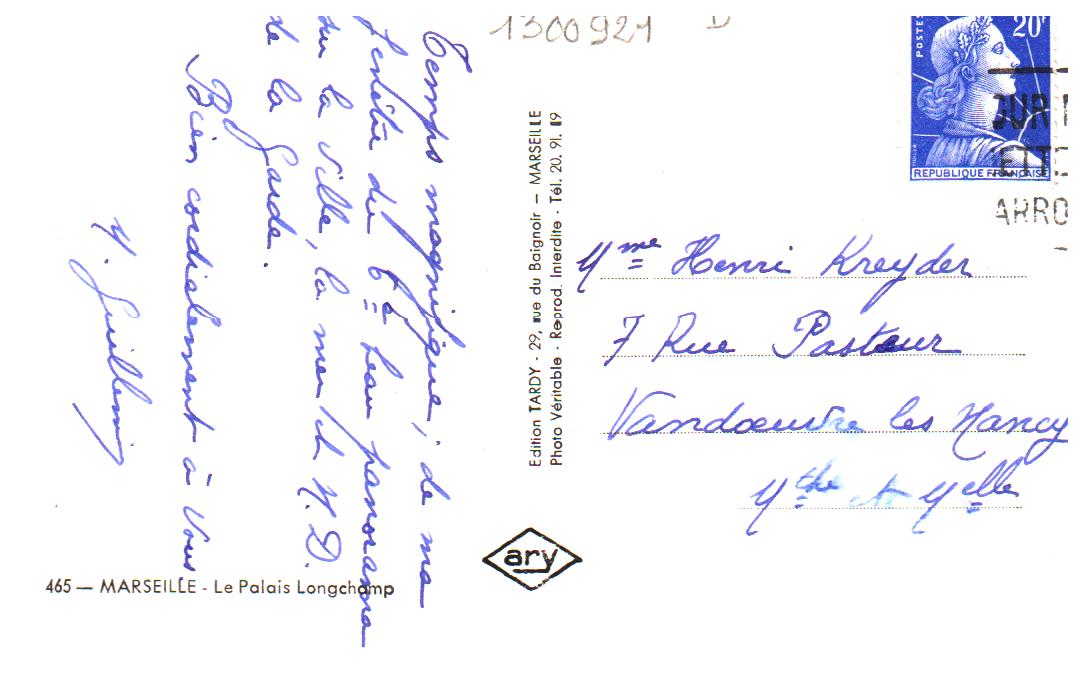 1300921 D
Temps magnifique, de ma
fenêtre du 6è beau panorama
sur la ville, la mer et N. D.
de la Garde.
Bien cordialement à vous
Y. Guillemin
465 — MARSEILLE - Le Palais Longchamp
Edition TARDY - 29, rue du Baignoir — MARSEILLE
Photo Véritable - Reprod. Interdite - Tél. 20. 91. 19
ary
POSTES
20F
REPUBLIQUE FRANÇAISE
ARRO
Mme Henri Kreyder
7 Rue Pasteur
Vandoeuvre les Nancy
Mthe et Melle